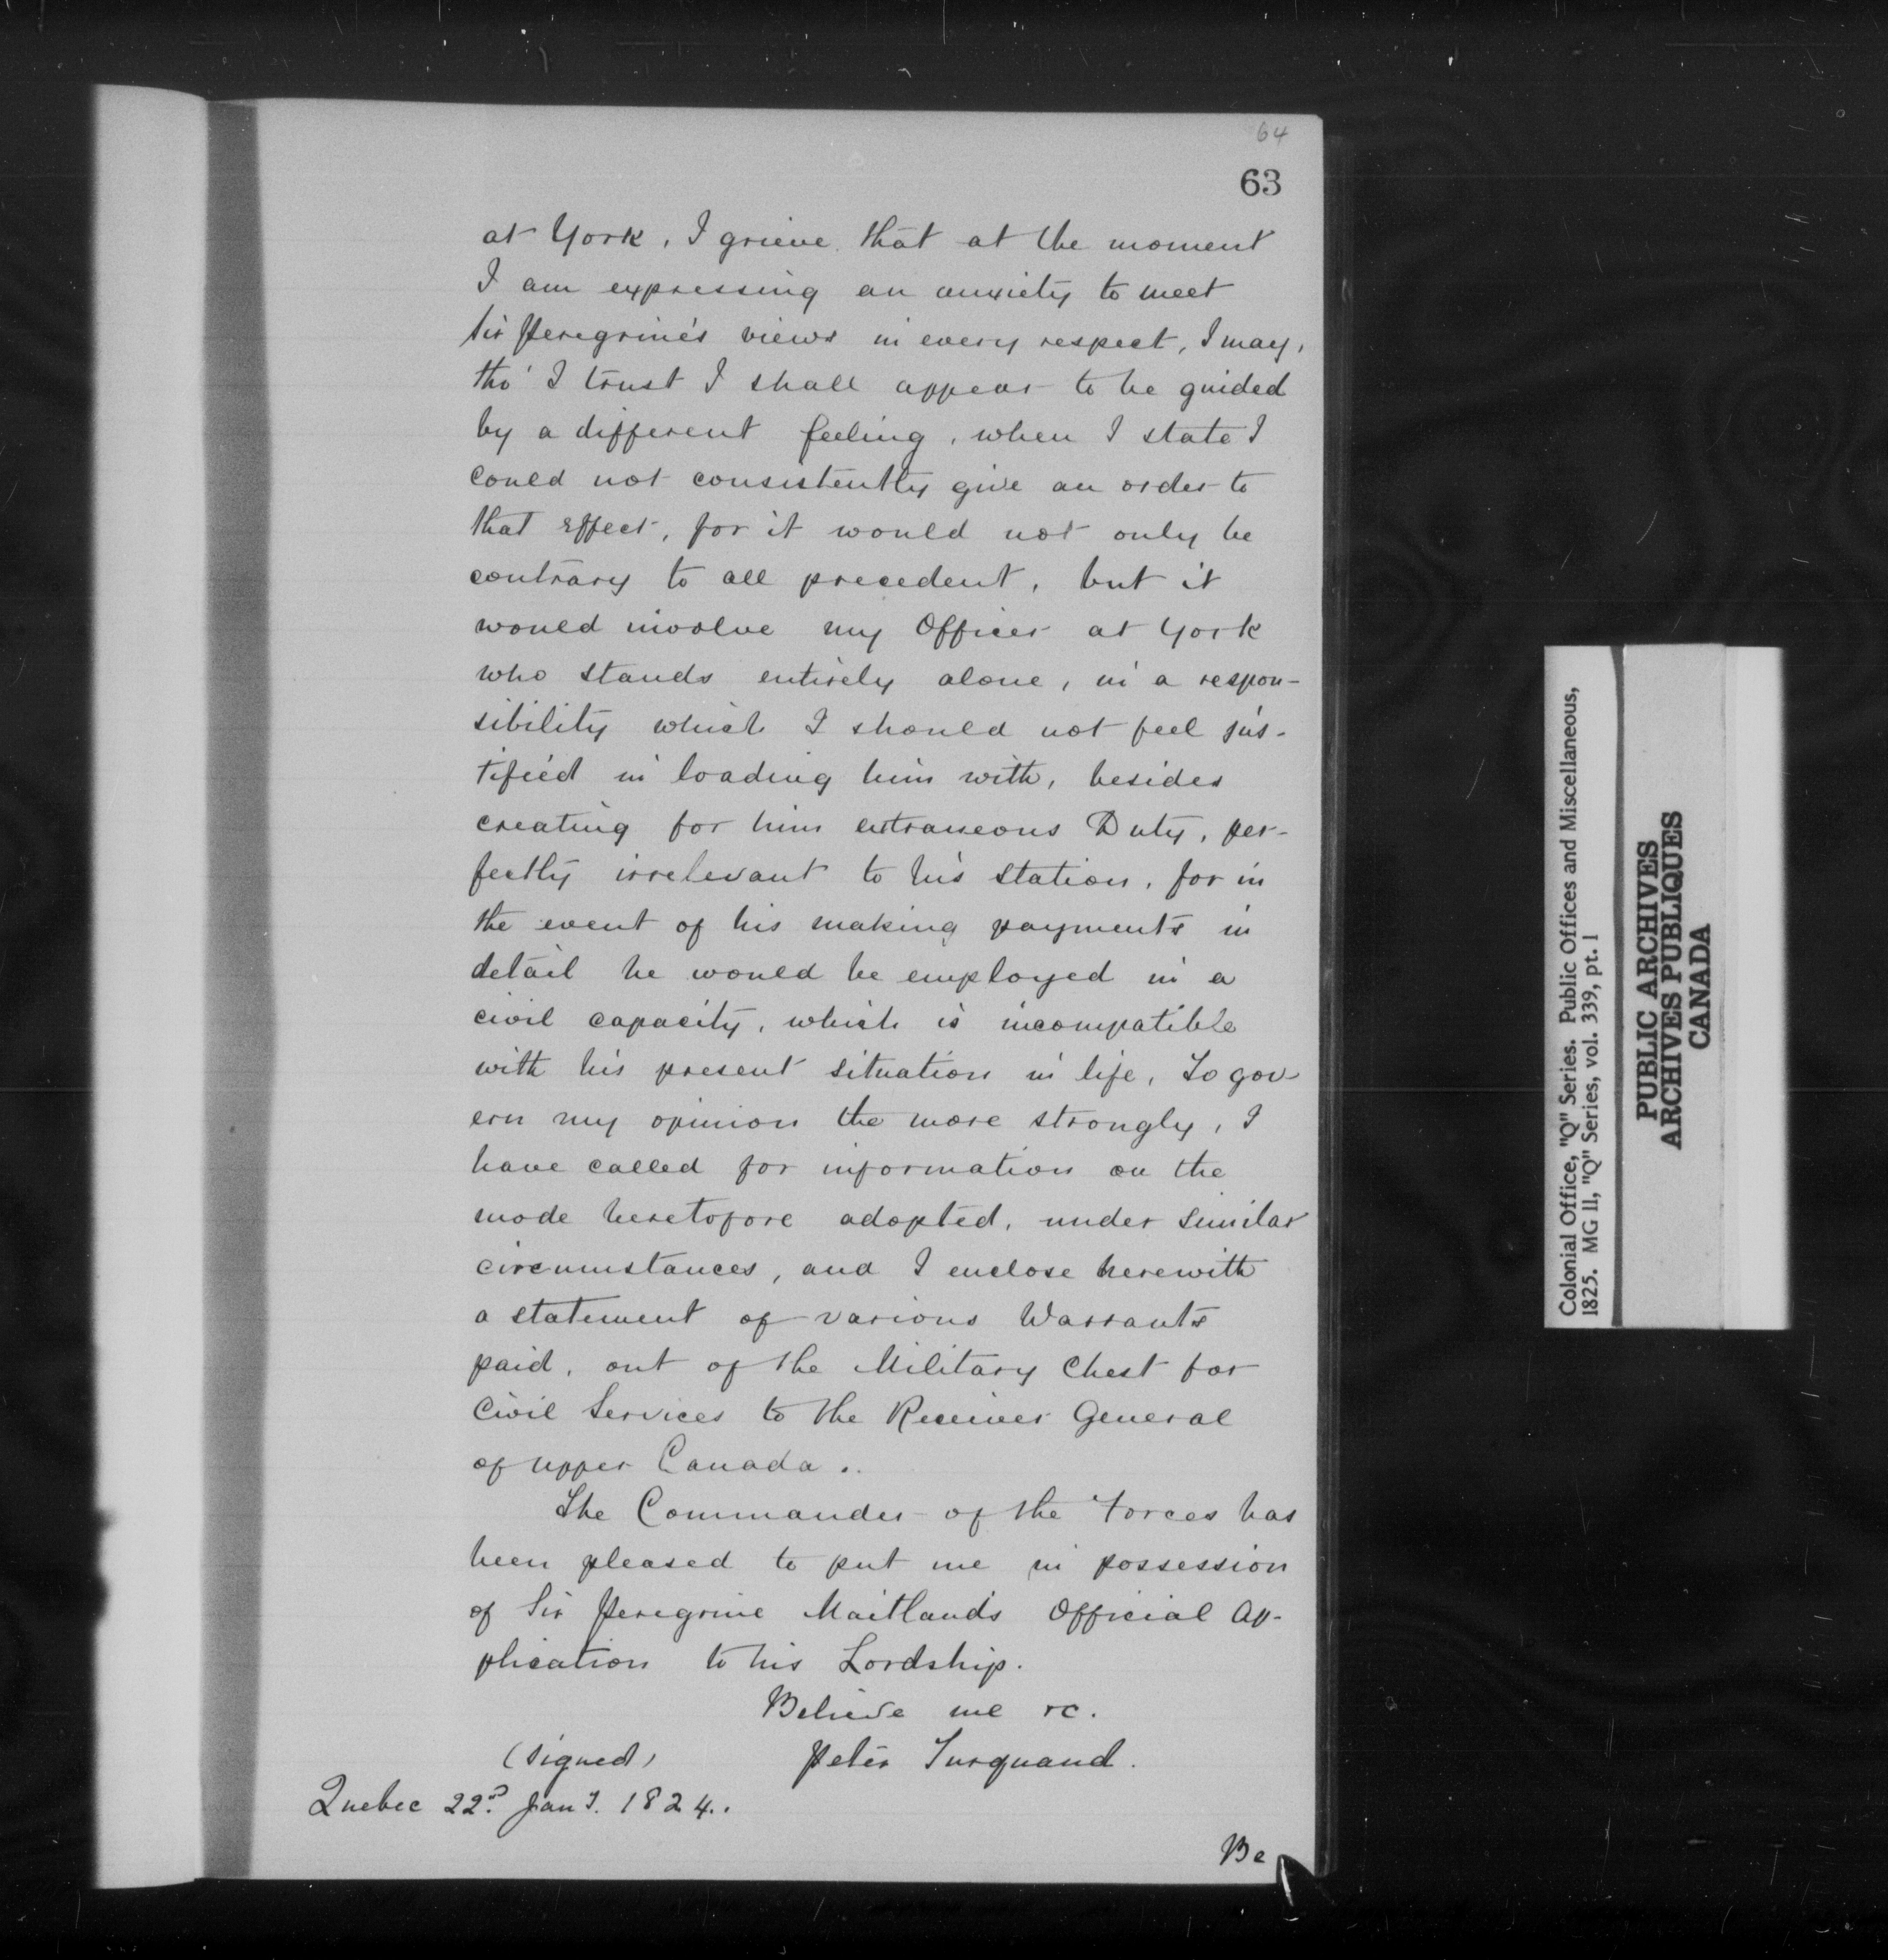 64
63
at York, I grieve that at the moment
I am expressing an anxiety to meet
Sir Peregrine's views in every respect, I may,
tho' I trust I shall appear to be guided
by a different feeling, when I state I
could not consistently give an order to
that effect, for it would not only be
contrary to all precedent, but it
would involve my Officer at York
who stands entirely alone, in a respon-
sibility which I should not feel jus-
tified in loading him with, besides
creating for him extraneous Duty, per-
fectly irrelevant to his station, for in
the event of his making payments in
detail he would be employed in a
civil capacity, which is incompatible
with his present situation in life, To gov
ern my opinion the more strongly, I
have called for information on the
mode heretofore adopted, under similar
circumstances, and I enclose herewith
a statement of various Warrants
paid, out of the Military Chest for
Civil Services to the Receiver General
of upper Canada..
The Commander of the Forces has
been pleased to put me in possession
of Sir Peregrine Maitlands Official Ap-
plication to his Lordship.
Believe me &c.
(signed) Peter Turquand.
Quebec 22nd Jany. 1824..
Be
Colonial Office, "Q" Series. Public Offices and Miscellaneous,
1825. MG 11, "Q" Series, vol. 339, pt. 1
PUBLIC ARCHIVES
ARCHIVES PUBLIQUES
CANADA